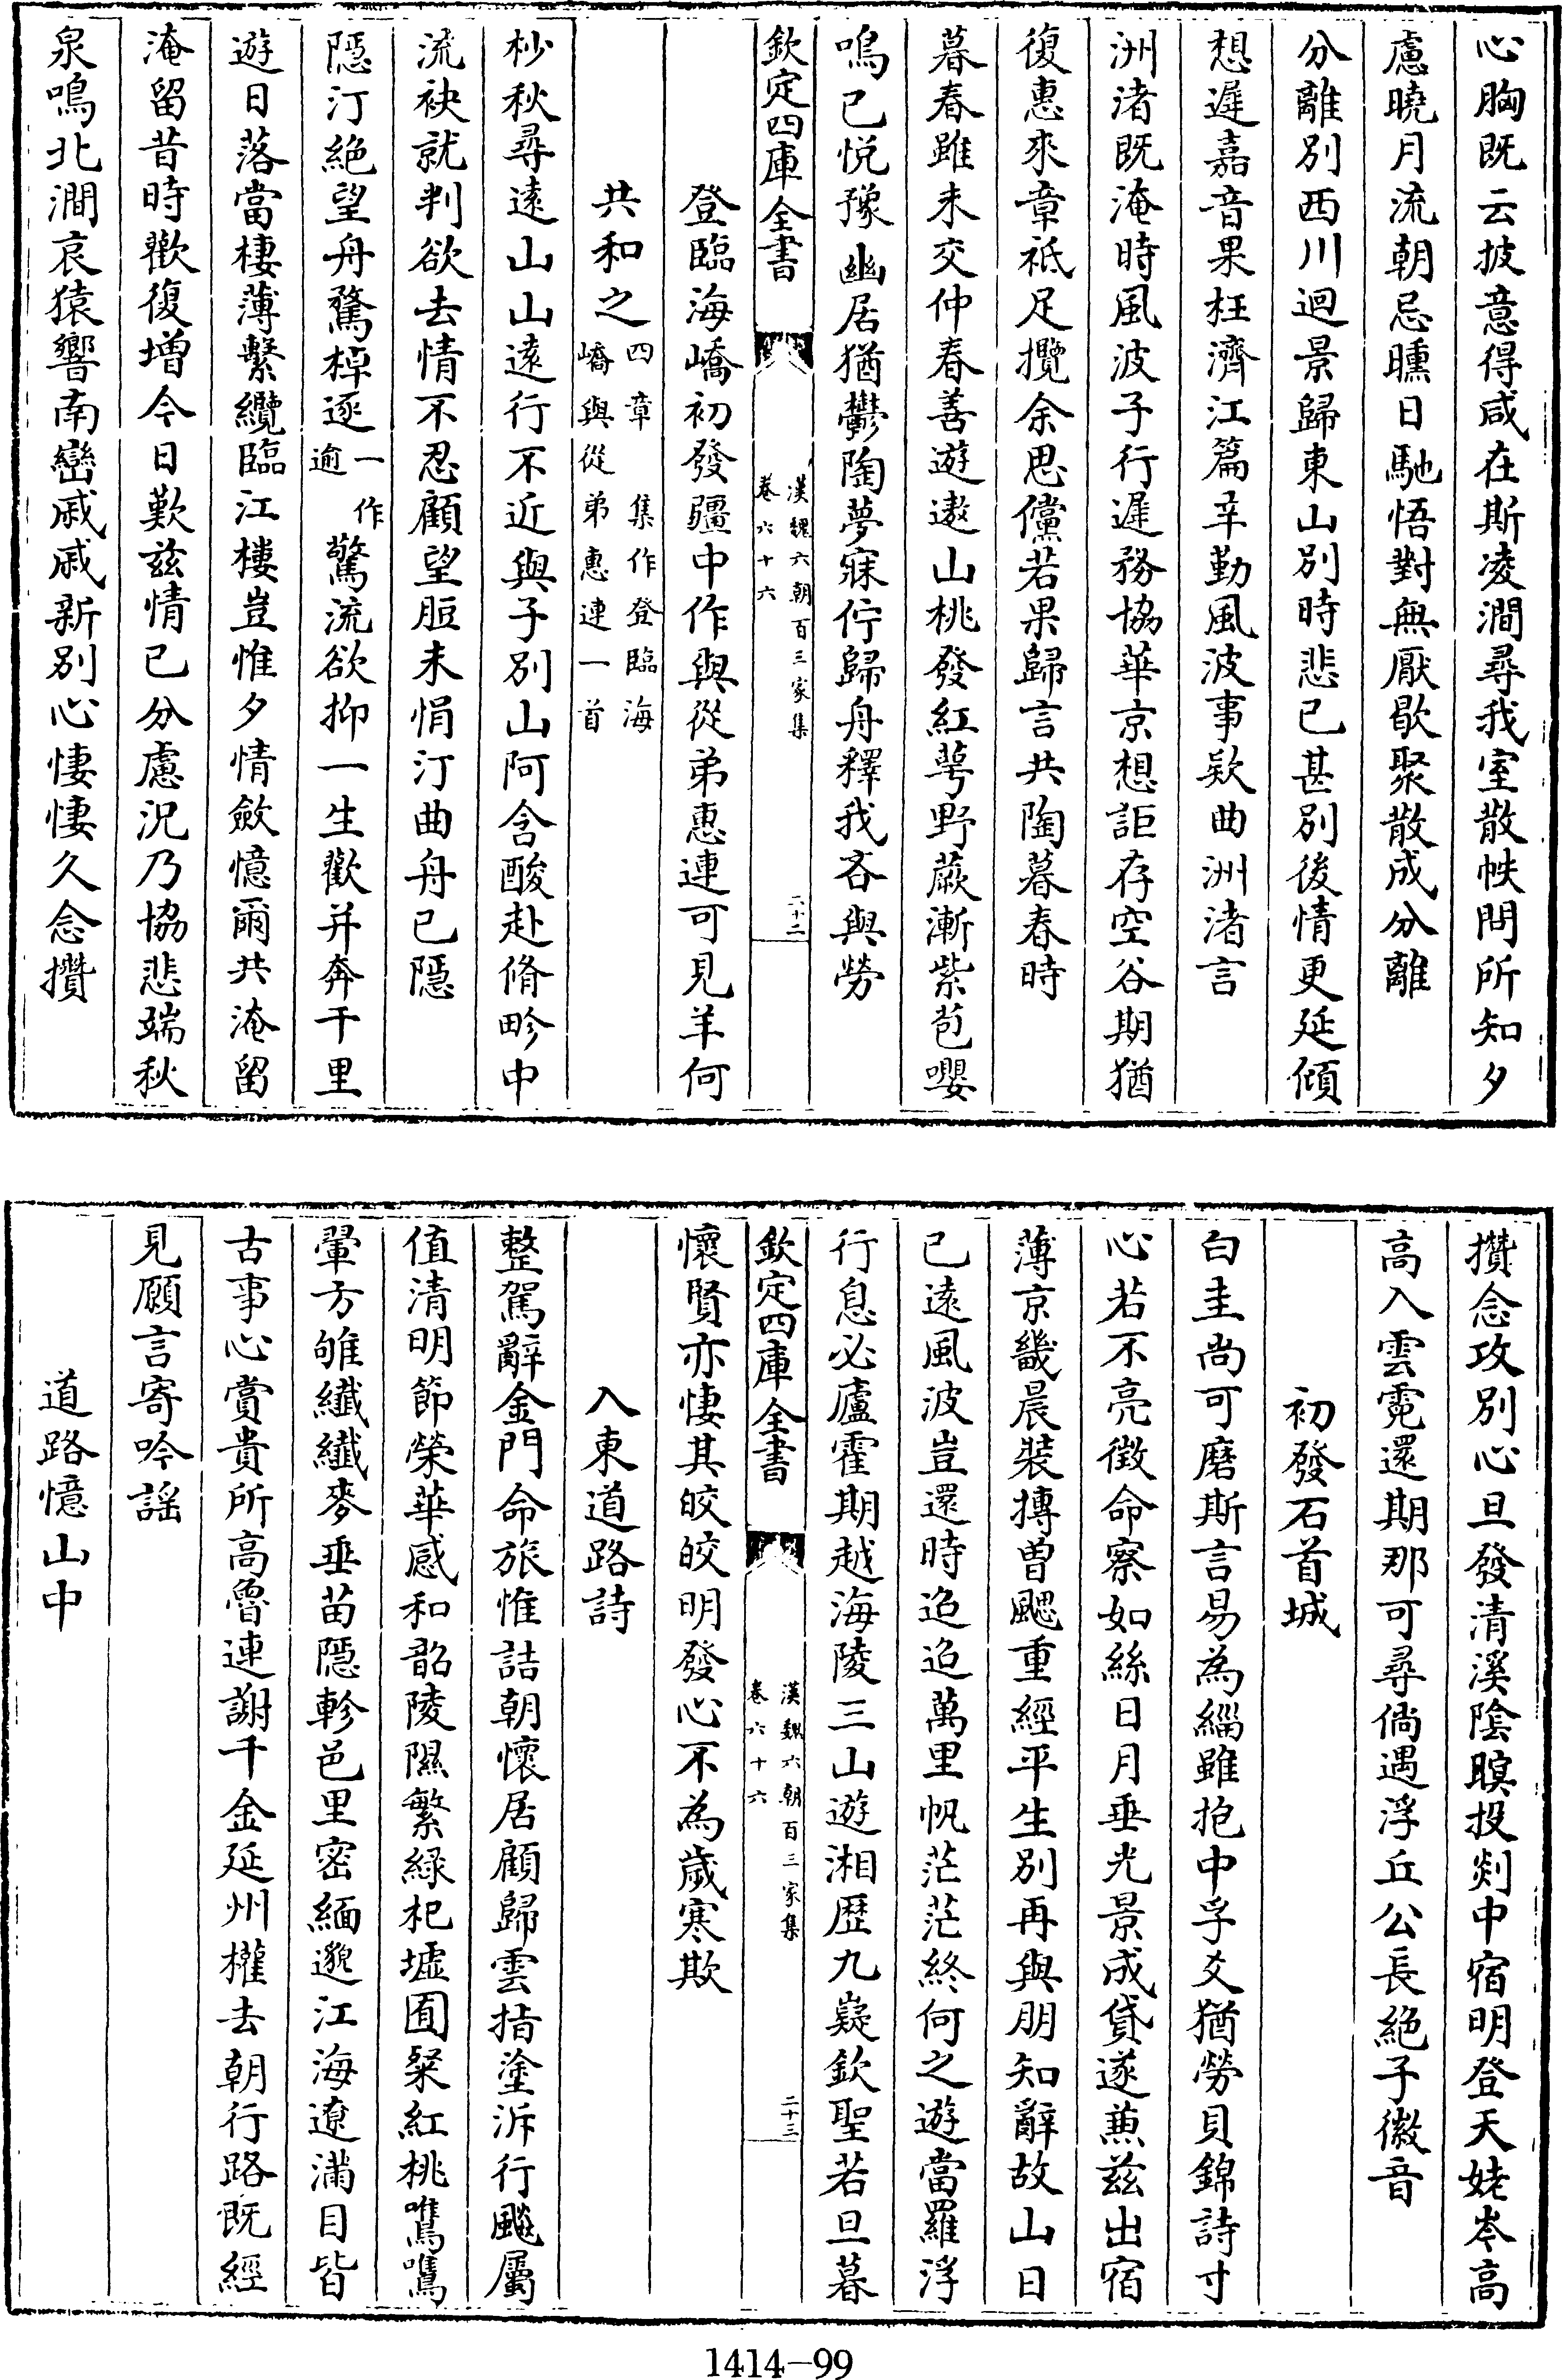 心胸既云披意得咸在斯凌澗尋我室散帙問所知夕
慮曉月流朝忌曛日馳悟對無厭歇聚散成分離
分離別西川迴景歸東山別時悲已甚別後情更延傾
想遲嘉音果枉濟江篇辛勤風波事欵曲洲渚言
洲渚既淹時風波子行遲務協華京想詎存空谷期猶
復惠來章祗足攪余思儻若果歸言共陶暮春時
暮春雖未交仲春善遊遨山桃發紅萼野蕨漸紫苞嚶
鳴已悦豫幽居猶鬱陶夢寐佇歸舟釋我吝與勞
欽定四庫全書
漢魏六朝百三家集
卷六十六
二十二
登臨海嶠初發疆中作與從弟惠連可見羊何
共和之四章 集作登臨海
嶠與從弟惠連一首
杪秋尋遠山山遠行不近與子別山阿含酸赴脩畛中
流袂就判欲去情不忍顧望脰未悁汀曲舟已隱
隱汀絶望舟騖棹逐一作
逾驚流欲抑一生歡并奔千里
遊日落當棲薄繫纜臨江樓豈惟夕情斂憶爾共淹留
淹留昔時歡復增今日歎兹情已分慮況乃協悲端秋
泉鳴北澗哀猿響南巒戚戚新別心悽悽久念攢
攢念攻別心旦發清溪陰暝投剡中宿明登天姥岑高
高入雲霓還期那可尋倘遇浮丘公長絶子徽音
初發石首城
白圭尚可磨斯言易為緇雖抱中孚爻猶勞貝錦詩寸
心若不亮微命察如絲日月垂光景成貸遂兼兹出宿
薄京畿晨裝搏曽颸重經平生別再與朋知辭故山日
已遠風波豈還時迢迢萬里帆茫茫終何之遊當羅浮
行息必廬霍期越海陵三山遊湘歴九嶷欽聖若旦暮
欽定四庫全書
漢魏六朝百三家集
卷六十六
二十三
懷賢亦悽其皎皎明發心不為歲寒欺
入東道路詩
整駕辭金門命旅惟詰朝懷居顧歸雲指塗泝行飈屬
值清明節榮華感和韶陵隰繁緑杞墟囿粲紅桃鷕鷕
翬方雊纖纖麥垂苗隱軫邑里密緬邈江海遼滿目皆
古事心賞貴所高魯連謝千金延州權去朝行路既經
見願言寄吟謡
道路憶山中
1414-99